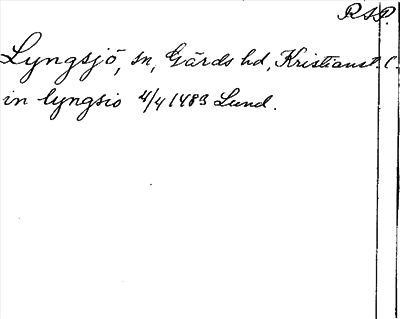 RSP.
Lyngsjö, sn, Gärds hd, Kristianst. l.
in lyngsio 4/4 1483 Lund.